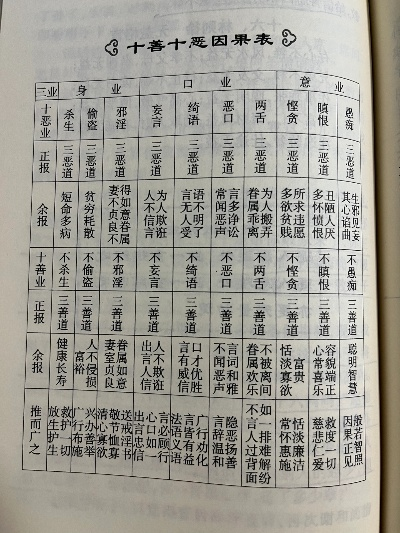 十善十恶因果表
三业 身业 口业 意业
十恶业 杀生 偷盗 邪淫 妄言 绮语 恶口 两舌 悭贪 瞋恨 愚痴
正报 三恶道 三恶道 三恶道 三恶道 三恶道 三恶道 三恶道 三恶道 三恶道 三恶道
余报 短命多病 贫穷耗散 妻不贞良不得如意眷属 人不信言为人欺诳 言无人受语不明了 常闻恶声言多诤讼 眷属乖离为人搬弄 多欲贫贱所求违愿 多怀愤恨丑陋人厌 其心谄曲生邪见妄
十善业 不杀生 不偷盗 不邪淫 不妄言 不绮语 不恶口 不两舌 不悭贪 不瞋恨 不愚痴
正报 三善道 三善道 三善道 三善道 三善道 三善道 三善道 三善道 三善道 三善道
余报 健康长寿 富裕人不侵损 妻室贞良眷属如意 出言人信人不欺诳 言有威信口才优胜 不闻恶声言词和雅 眷属欢乐不被离间 恬淡寡欲富贵 心常喜乐容貌端正 聪明智慧
推而广之 放生护生救护一切 广行布施兴办善举 清心寡欲敬节恤寡送戒淫书 出言忠信心口如一言必顾行 法语义语言皆有益广行劝化 言辞温和隐恶扬善 不言人过背面如一排难解纷 常怀惠施恬淡廉洁 慈悲仁爱救度一切 因果正见般若智照